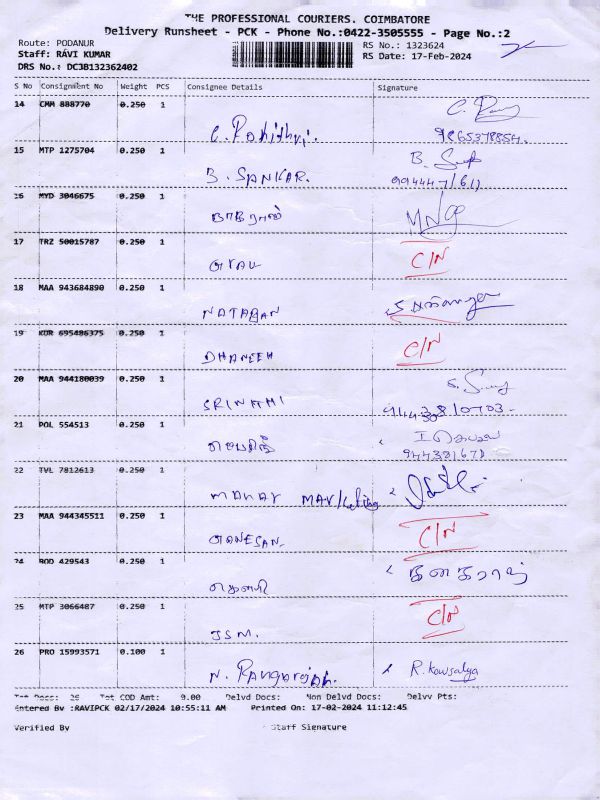 THE PROFESSIONAL COURIERS. COIMBATORE
Delivery Runsheet - PCK - Phone No.:0422-3505555 - Page No.:2
Route: PODANUR
RS No.: 1323624
Staff: RAVI KUMAR
RS Date: 17-Feb-2024
DRS No.: DCJB132362402
S No Consignment No Weight PCS Consignee Details Signature
14 CMM 888770 0.250 1
15 MTP 1275704 0.250 1
B. SANKAR.
16 MYD 3046675 0.250 1
நாகராஜ்
17 TRZ 50015787 0.250 1
C/N
18 MAA 943684890 0.250 1
NATARAN
19 KUR 695486375 0.250 1
DHANEEH
C/N
20 MAA 944180039 0.250 1
SRINATHI
21 POL 554513 0.250 1
22 TVL 7812613 0.250 1
23 MAA 944345511 0.250 1
GANESAN.
C/N
24 ROD 429543 0.250 1
கனகராஜ்
25 MTP 3066487 0.250 1
JSM.
C/N
26 PRO 15993571 0.100 1
N. Rangarajan.
R. Kowsalya
Tot Docs: 26 Tot COD Amt: 0.00 Delvd Docs: Non Delvd Docs: Delvv Pts:
Entered By :RAVIPCK 02/17/2024 10:55:11 AM Printed On: 17-02-2024 11:12:45
Verified By Staff Signature